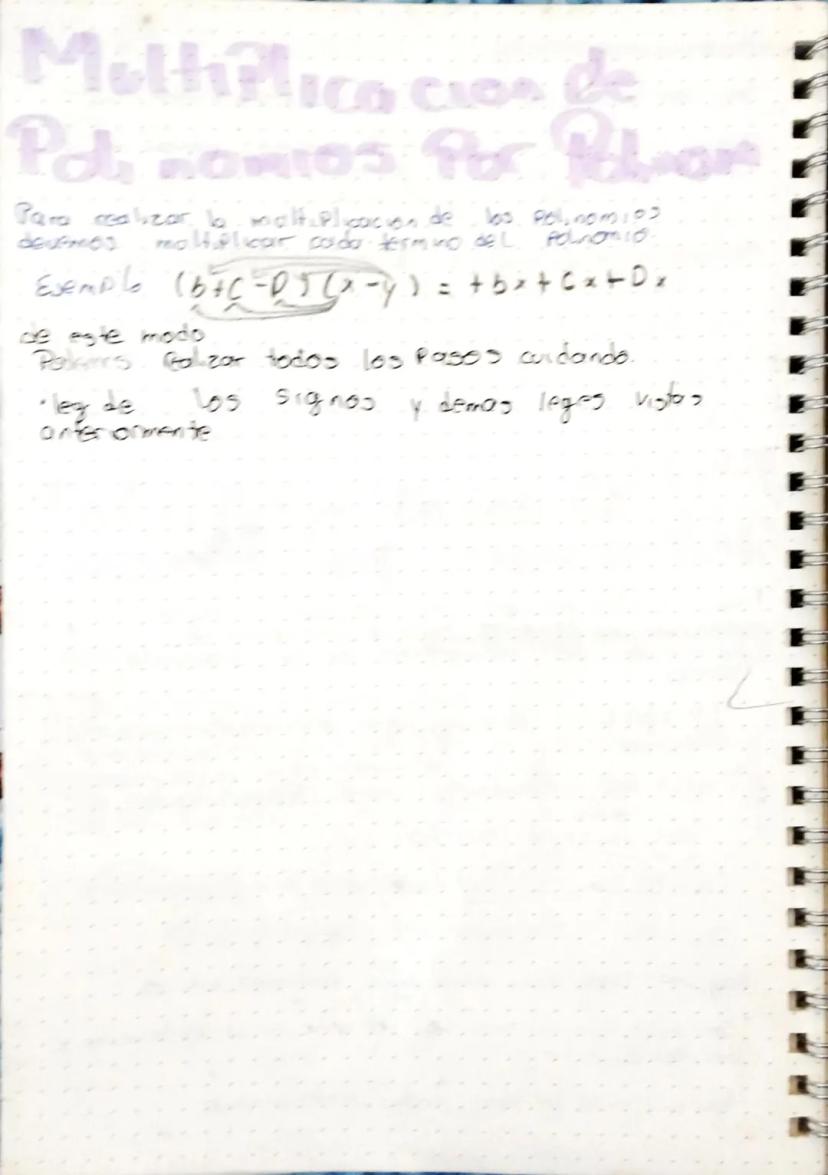 Multiplicacion de
Polinomios Por Polinom
Para realizar la multiplicacion de los polinomios
devemos multiplicar cada termino del polinomio.
Ejemplo (b+c-D) (x-y) = +bx+Cx+Dx
de este modo
realizar todos los Pasos cuidando.
• ley de los signos y demas leyes vistas
anteriormente